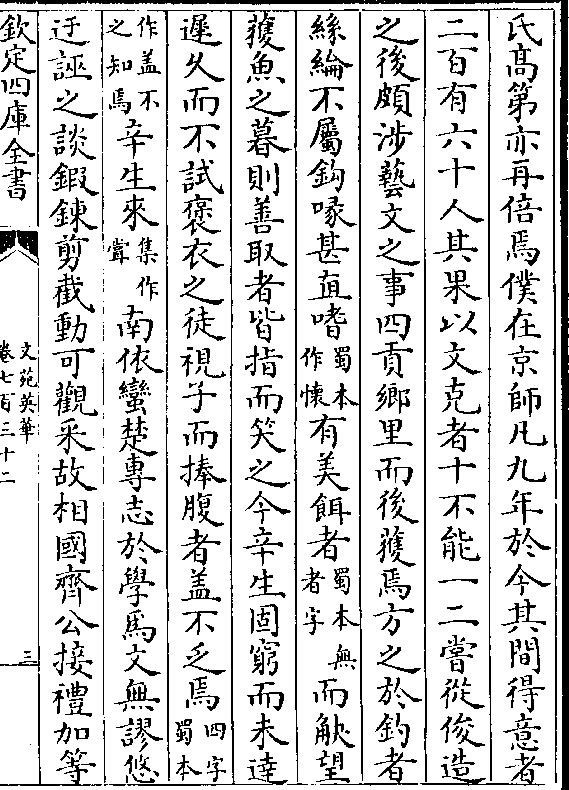 氏高第亦再倍焉僕在京師凡九年於今其間得意者
二百有六十人其果以文克者十不能一二嘗從俊造
之後頗涉藝文之事四貢鄉里而後獲焉方之於釣者
絲綸不屬鈎喙甚直嗜蜀本作懷有美餌者蜀本無者字而觖望
獲魚之暮則善取者皆指而笑之今辛生固窮而未達
遲久而不試褒衣之徒視子而捧腹者盖不乏焉四字蜀本
作盖不之知焉辛生來集作嘗南依蠻楚專志於學為文無謬悠
迂誣之談鍜鍊剪截動可觀采故相國齊公接禮加等
欽定四庫全書
文苑英華
卷七百三十二
三